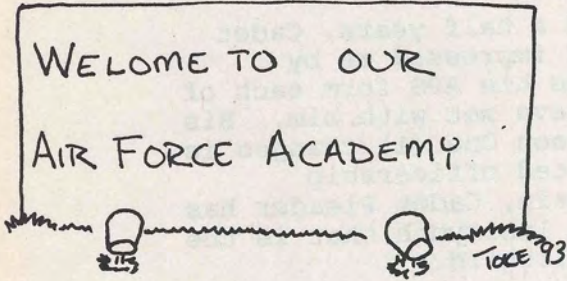 WELOME TO OUR
AIR FORCE ACADEMY
TOKE '93